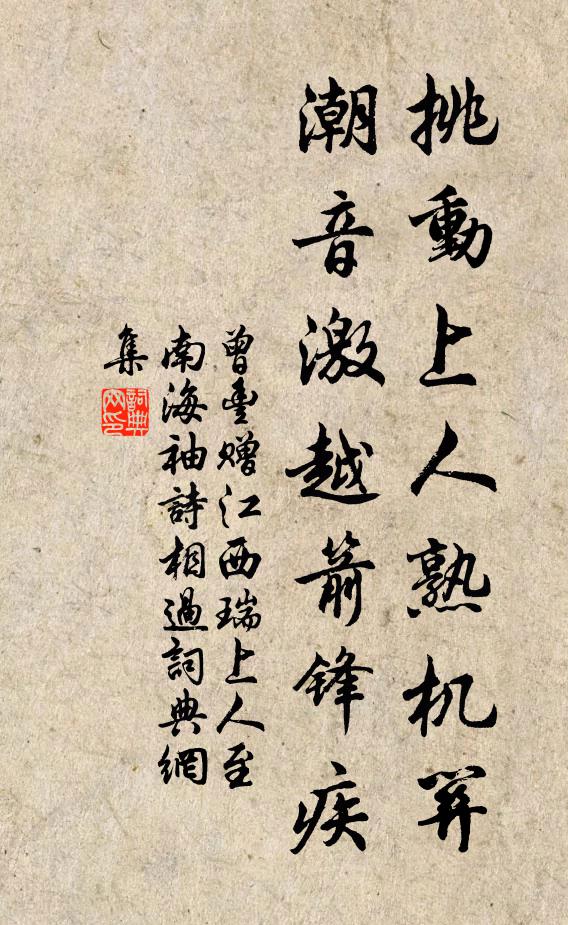 挑動上人熟机羿
潮音激越箭锋疾
曾豊赠江西瑞上人至
南海袖詩相過詞典網
集
詞典
网印